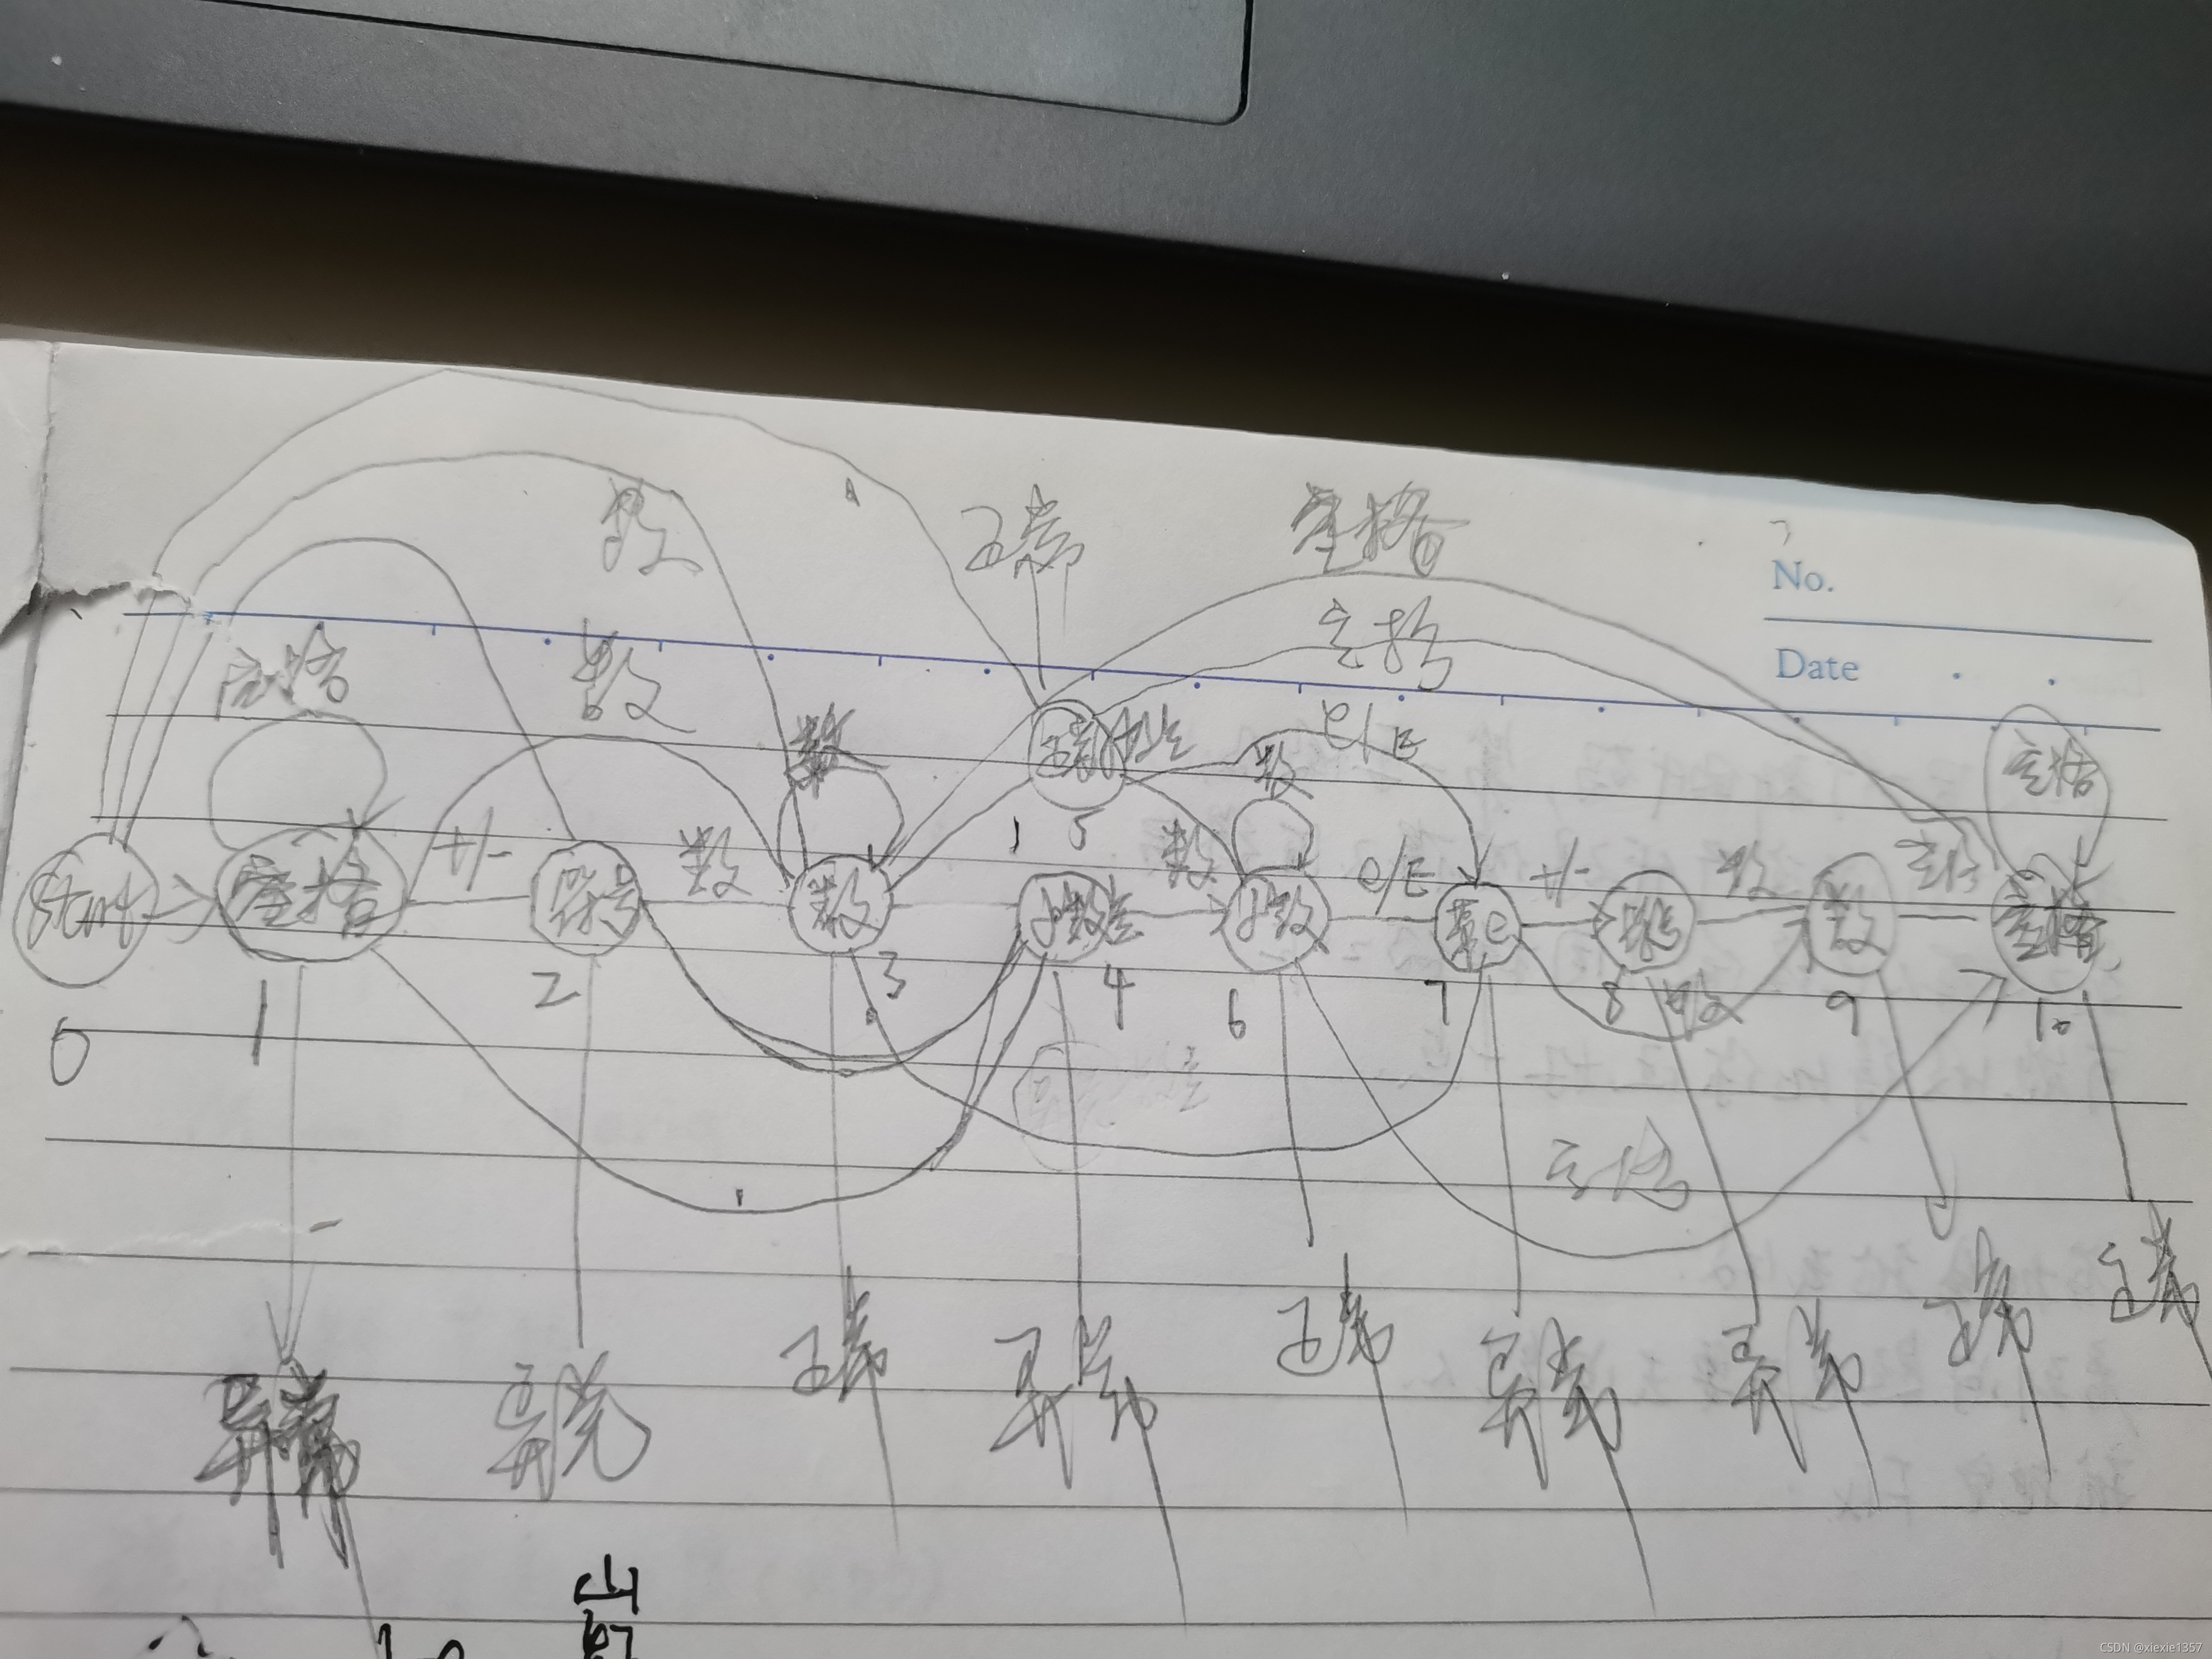 数
正常
空格
No.
空格
Date
空格
数
数
e/E
数
空格
+/-
数
5
数
e/E
+/-
数
空格
Start
空格
符号
数
小数点
小数
带e
符号
数
空格
0
1
2
3
4
6
7
8
数
9
10
空格
异常
异常
正常
异常
正常
异常
异常
正常
正常
CSDN @xiexie1357